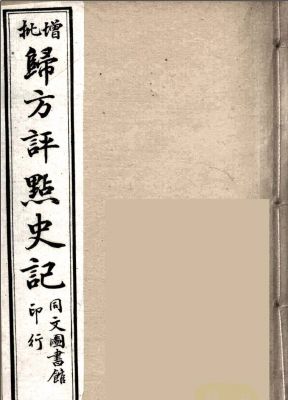 增批
歸方評點史記
同文圖書館
印行